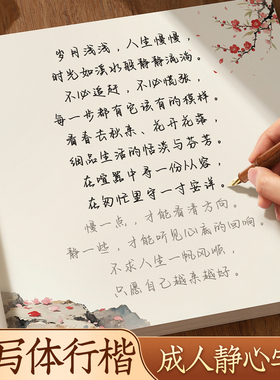 岁月浅浅，人生慢慢，
时光如溪水般静静流淌。
不必追赶，不必慌张，
每一步都有它该有的模样。
看春去秋来、花开花落，
细品生活的恬淡与芬芳。
在喧嚣中寻一份从容，
在匆忙里守一寸安详。
慢一点，才能看清方向。
静一些，才能听见心离的回响。
不求人生一帆风顺，
只愿自己越来越好。
写体行楷
成人静心